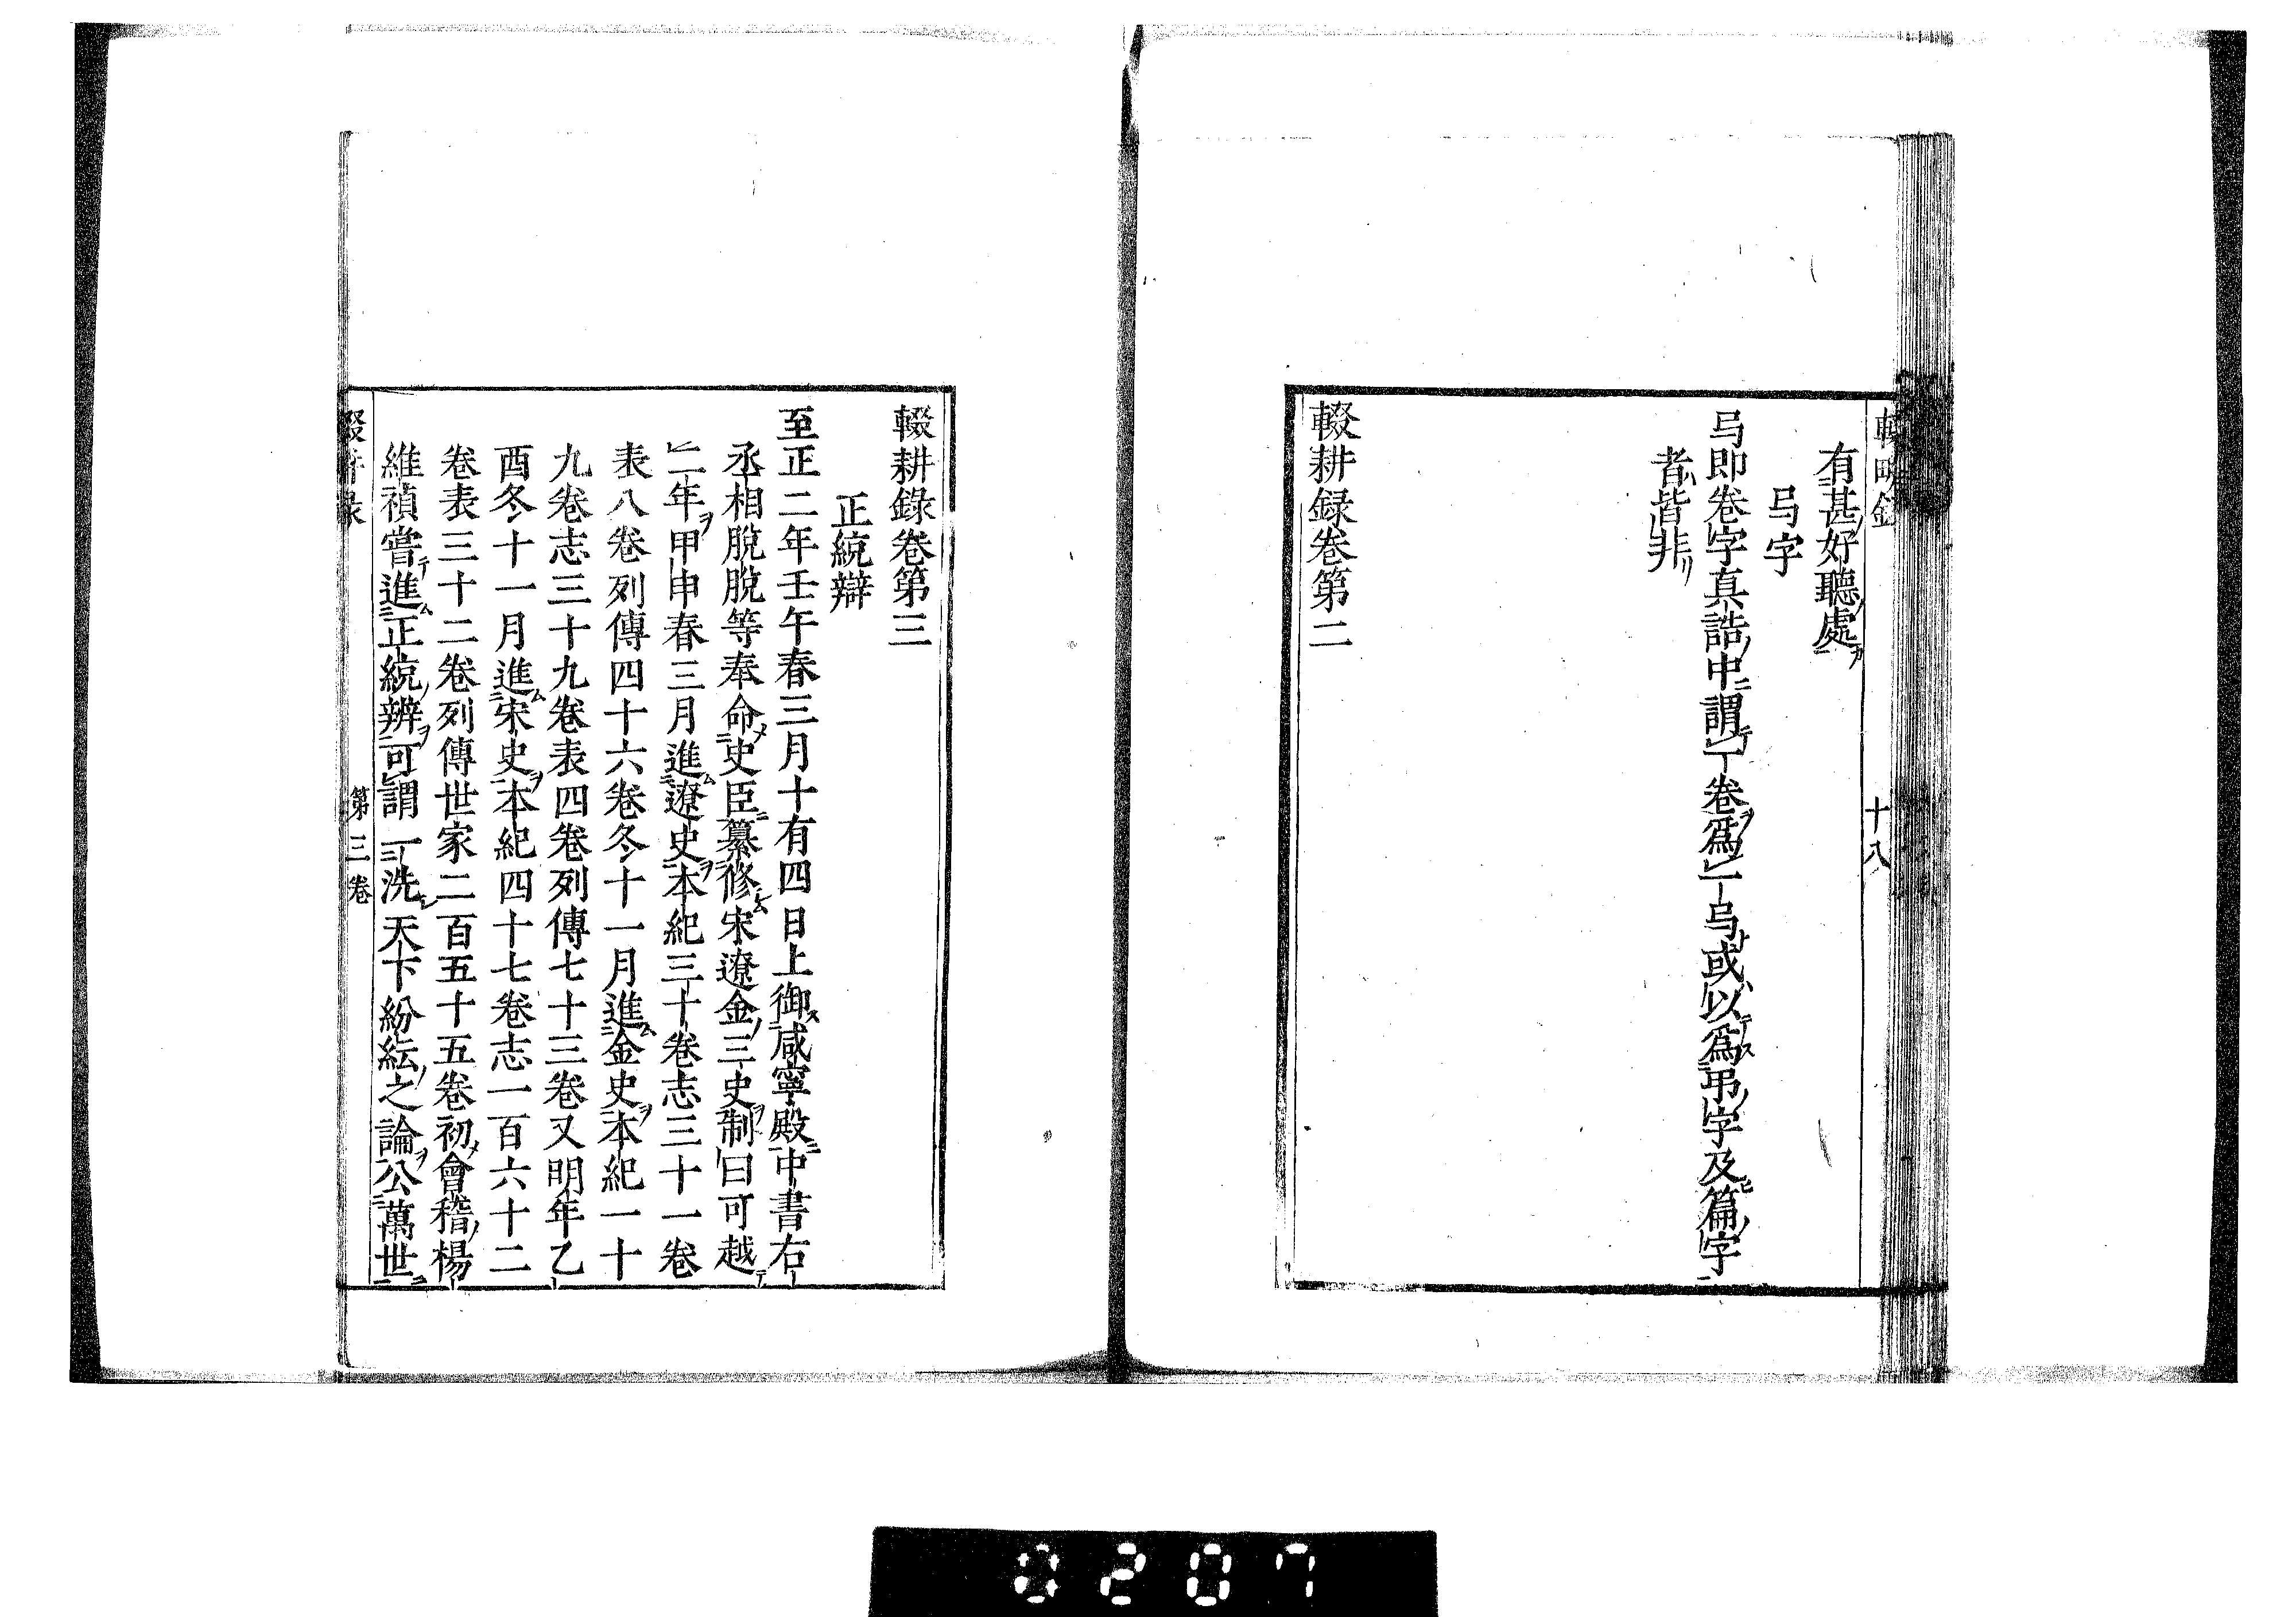 輟耕錄
十八
有甚好聽處
弓字
弓即卷字真誥中謂一卷爲一弓或以爲弔字及篇字
者皆非
輟耕録卷第二
輟耕録卷第三
正統辯
至正二年壬午春三月十有四日上御咸寧殿中書右
丞相脫脫等奉命史臣纂修宋遼金三史制曰可越
二年甲申春三月進遼史本紀三十卷志三十一卷
表八卷列傳四十六卷冬十一月進金史本紀一十
九卷志三十九卷表四卷列傳七十三卷又明年乙
酉冬十一月進宋史本紀四十七卷志一百六十二
卷表三十二卷列傳世家二百五十五卷初會稽楊
維禎嘗進正統辨可謂一洗天下紛紜之論公萬世
輟耕录
第三卷
0207